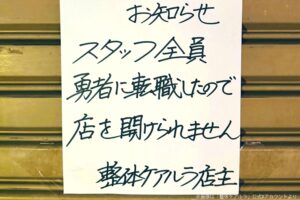 お知らせ
スタッフ全員
勇者に転職したので
店を開けられません
整体ケアルラ店主